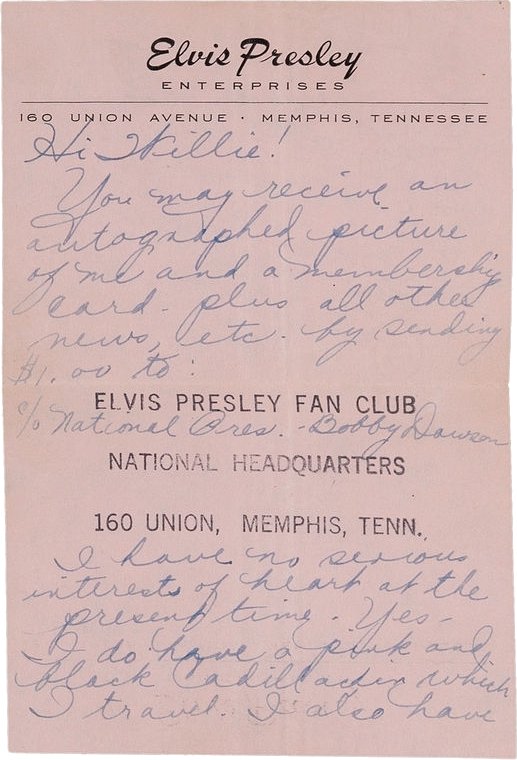 Elvis Presley
ENTERPRISES
160 UNION AVENUE · MEMPHIS, TENNESSEE
Hi Willie!
You may receive an
autographed picture
of me and a membership
card - plus all other
news, etc. by sending
$1.00 to:
ELVIS PRESLEY FAN CLUB
c/o National Pres. - Bobby Dawson
NATIONAL HEADQUARTERS
160 UNION, MEMPHIS, TENN.
I have no serious
interests of heart at the
present time. Yes -
I do have a pink and
black Cadillac in which
I travel. I also have